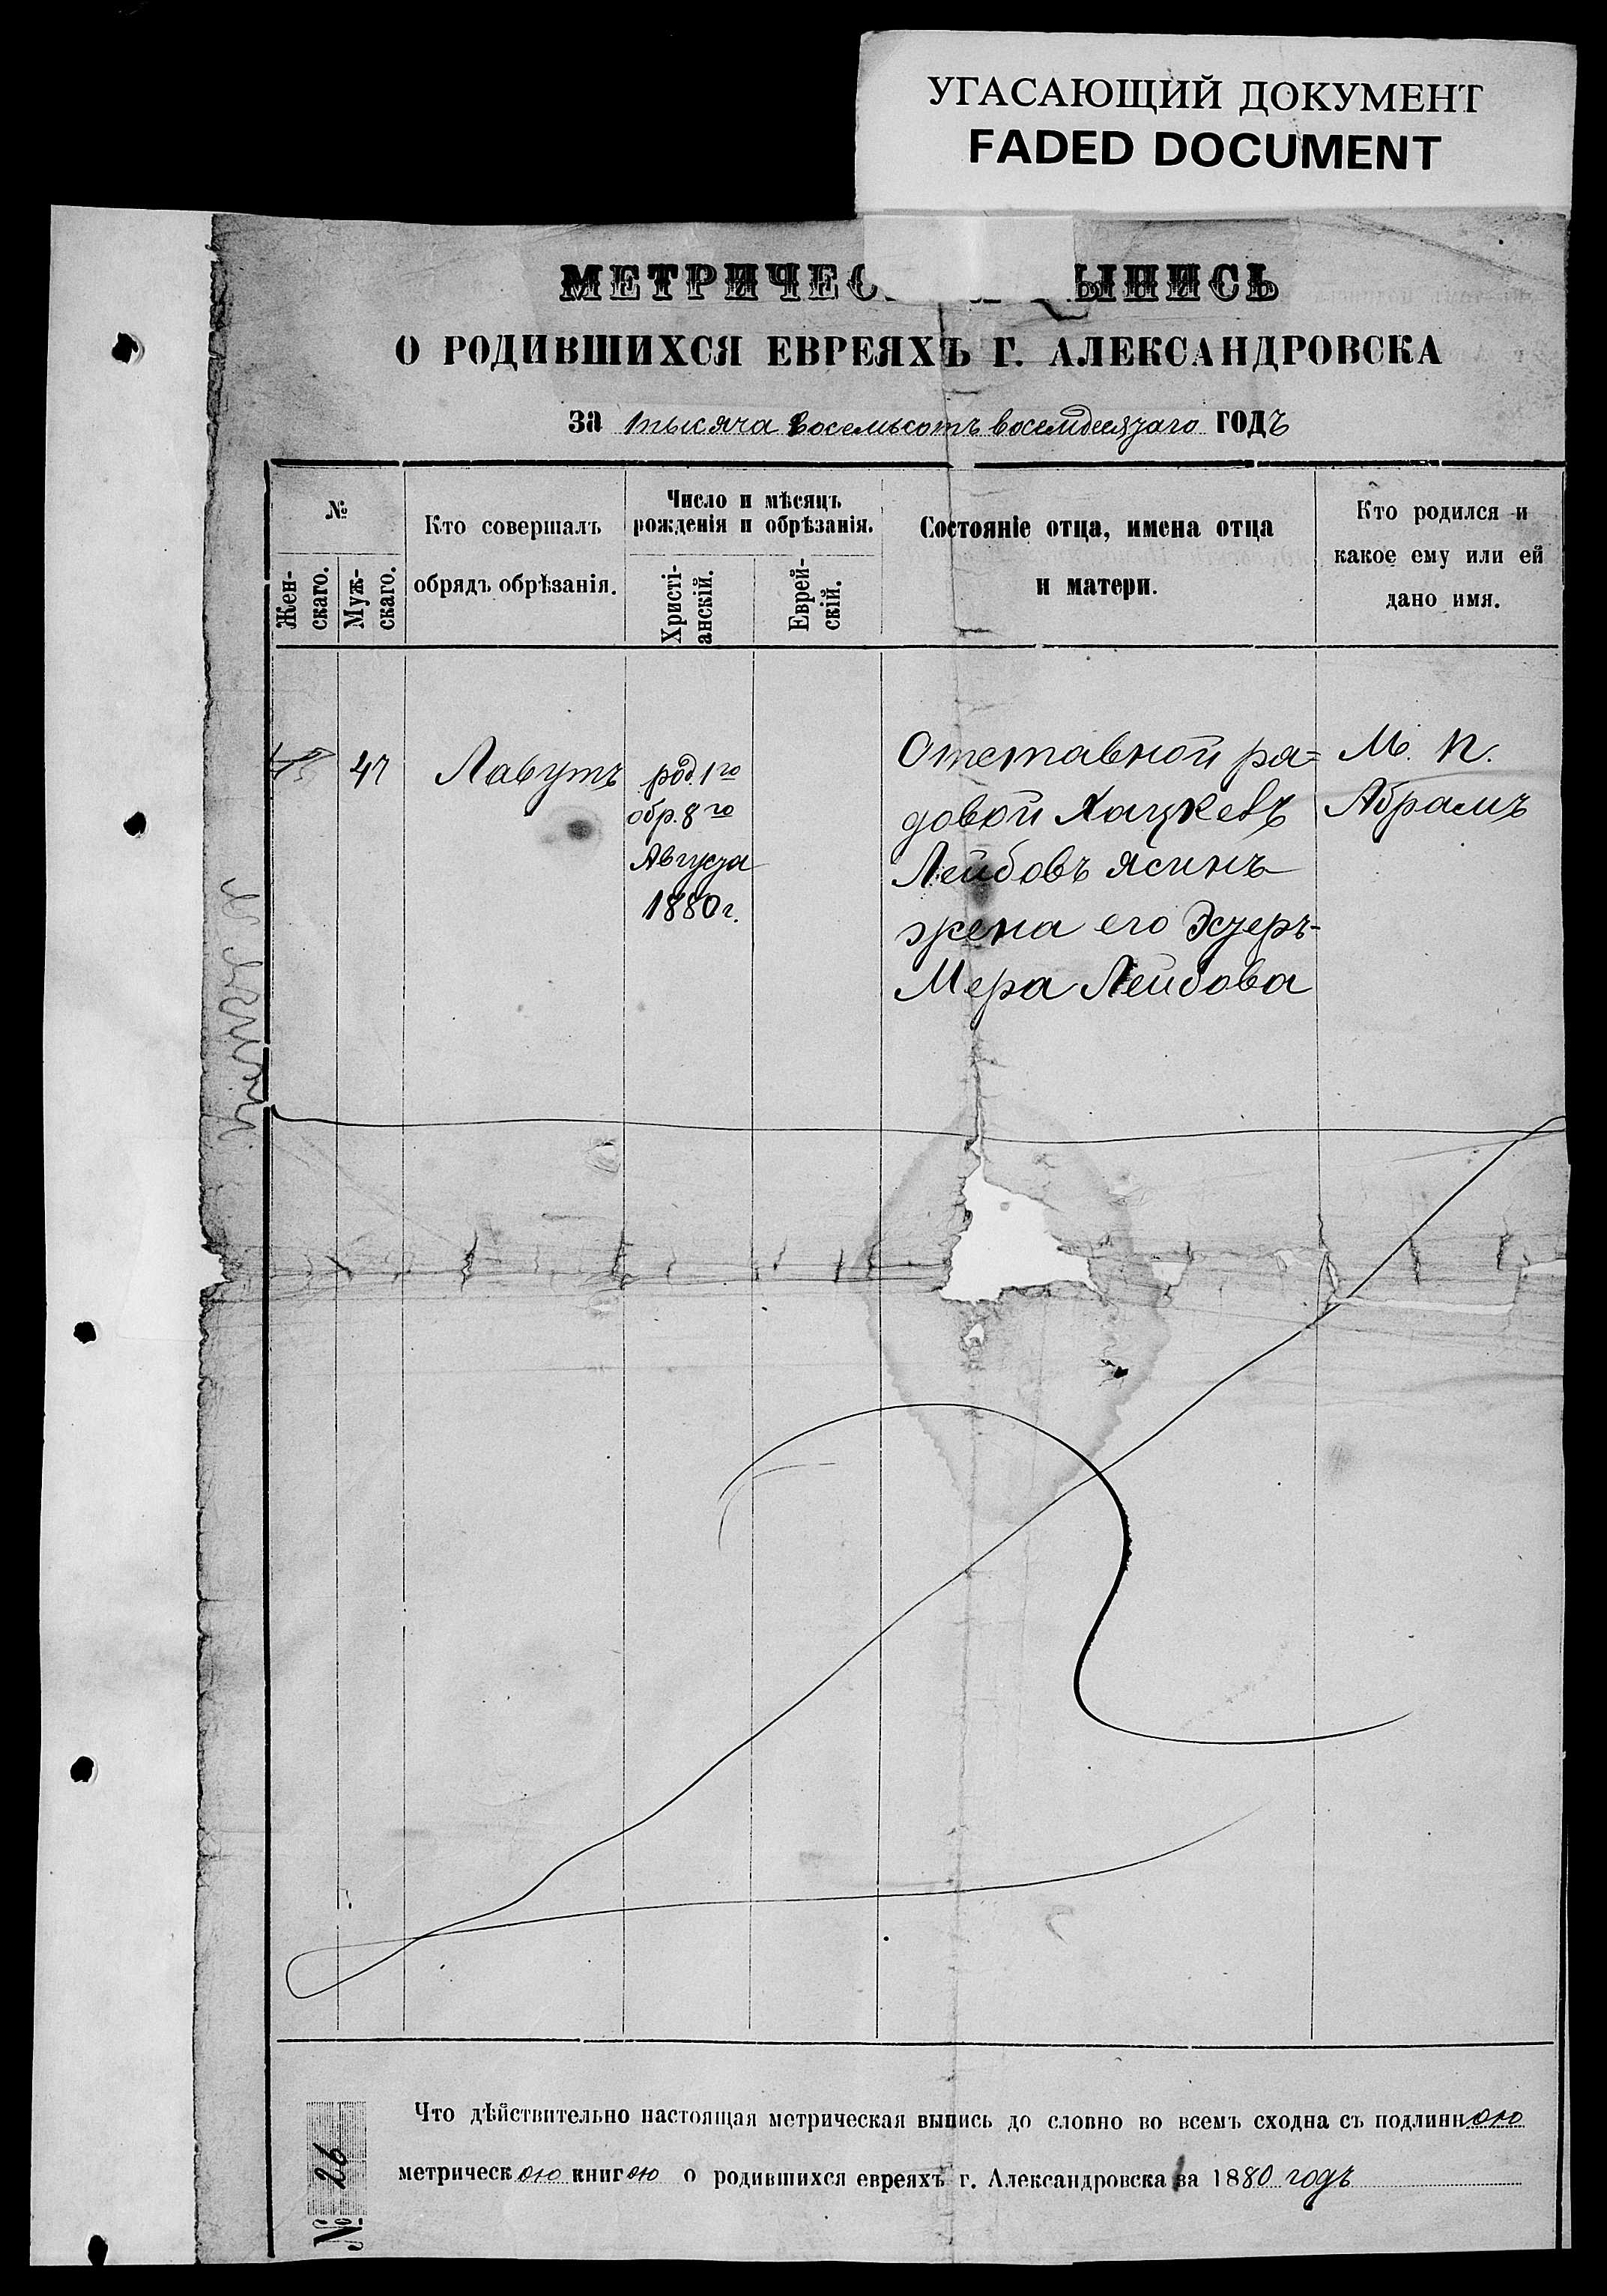 УГАСАЮЩИЙ ДОКУМЕНТ
FADED DOCUMENT
МЕТРИЧЕС ЫПИСЬ
О РОДИВШИХСЯ ЕВРЕЯХЪ Г. АЛЕКСАНДРОВСКА
за тысяча восемьсотъ восемдесятаго годъ
№
Жен-
скаго.
Муж-
скаго.
Кто совершалъ
обрядъ обрѣзанія.
Число и мѣсяцъ
рожденія и обрѣзанія.
Христі-
анскій.
Еврей-
скій.
Состояніе отца, имена отца
и матери.
Кто родился и
какое ему или ей
дано имя.
47
Лавутъ
род. 1го
обр. 8го
Августа
1880 г.
Отставной ря=
довой Хацкевъ
Лейбовъ Ясинъ
жена его Эстеръ-
Мера Лейбова
М. п.
Абрамъ
Что дѣйствительно настоящая метрическая выпись до словно во всемъ сходна съ подлинною
метрическою книгою о родившихся евреяхъ г. Александровска за 1880 годъ
№ 26